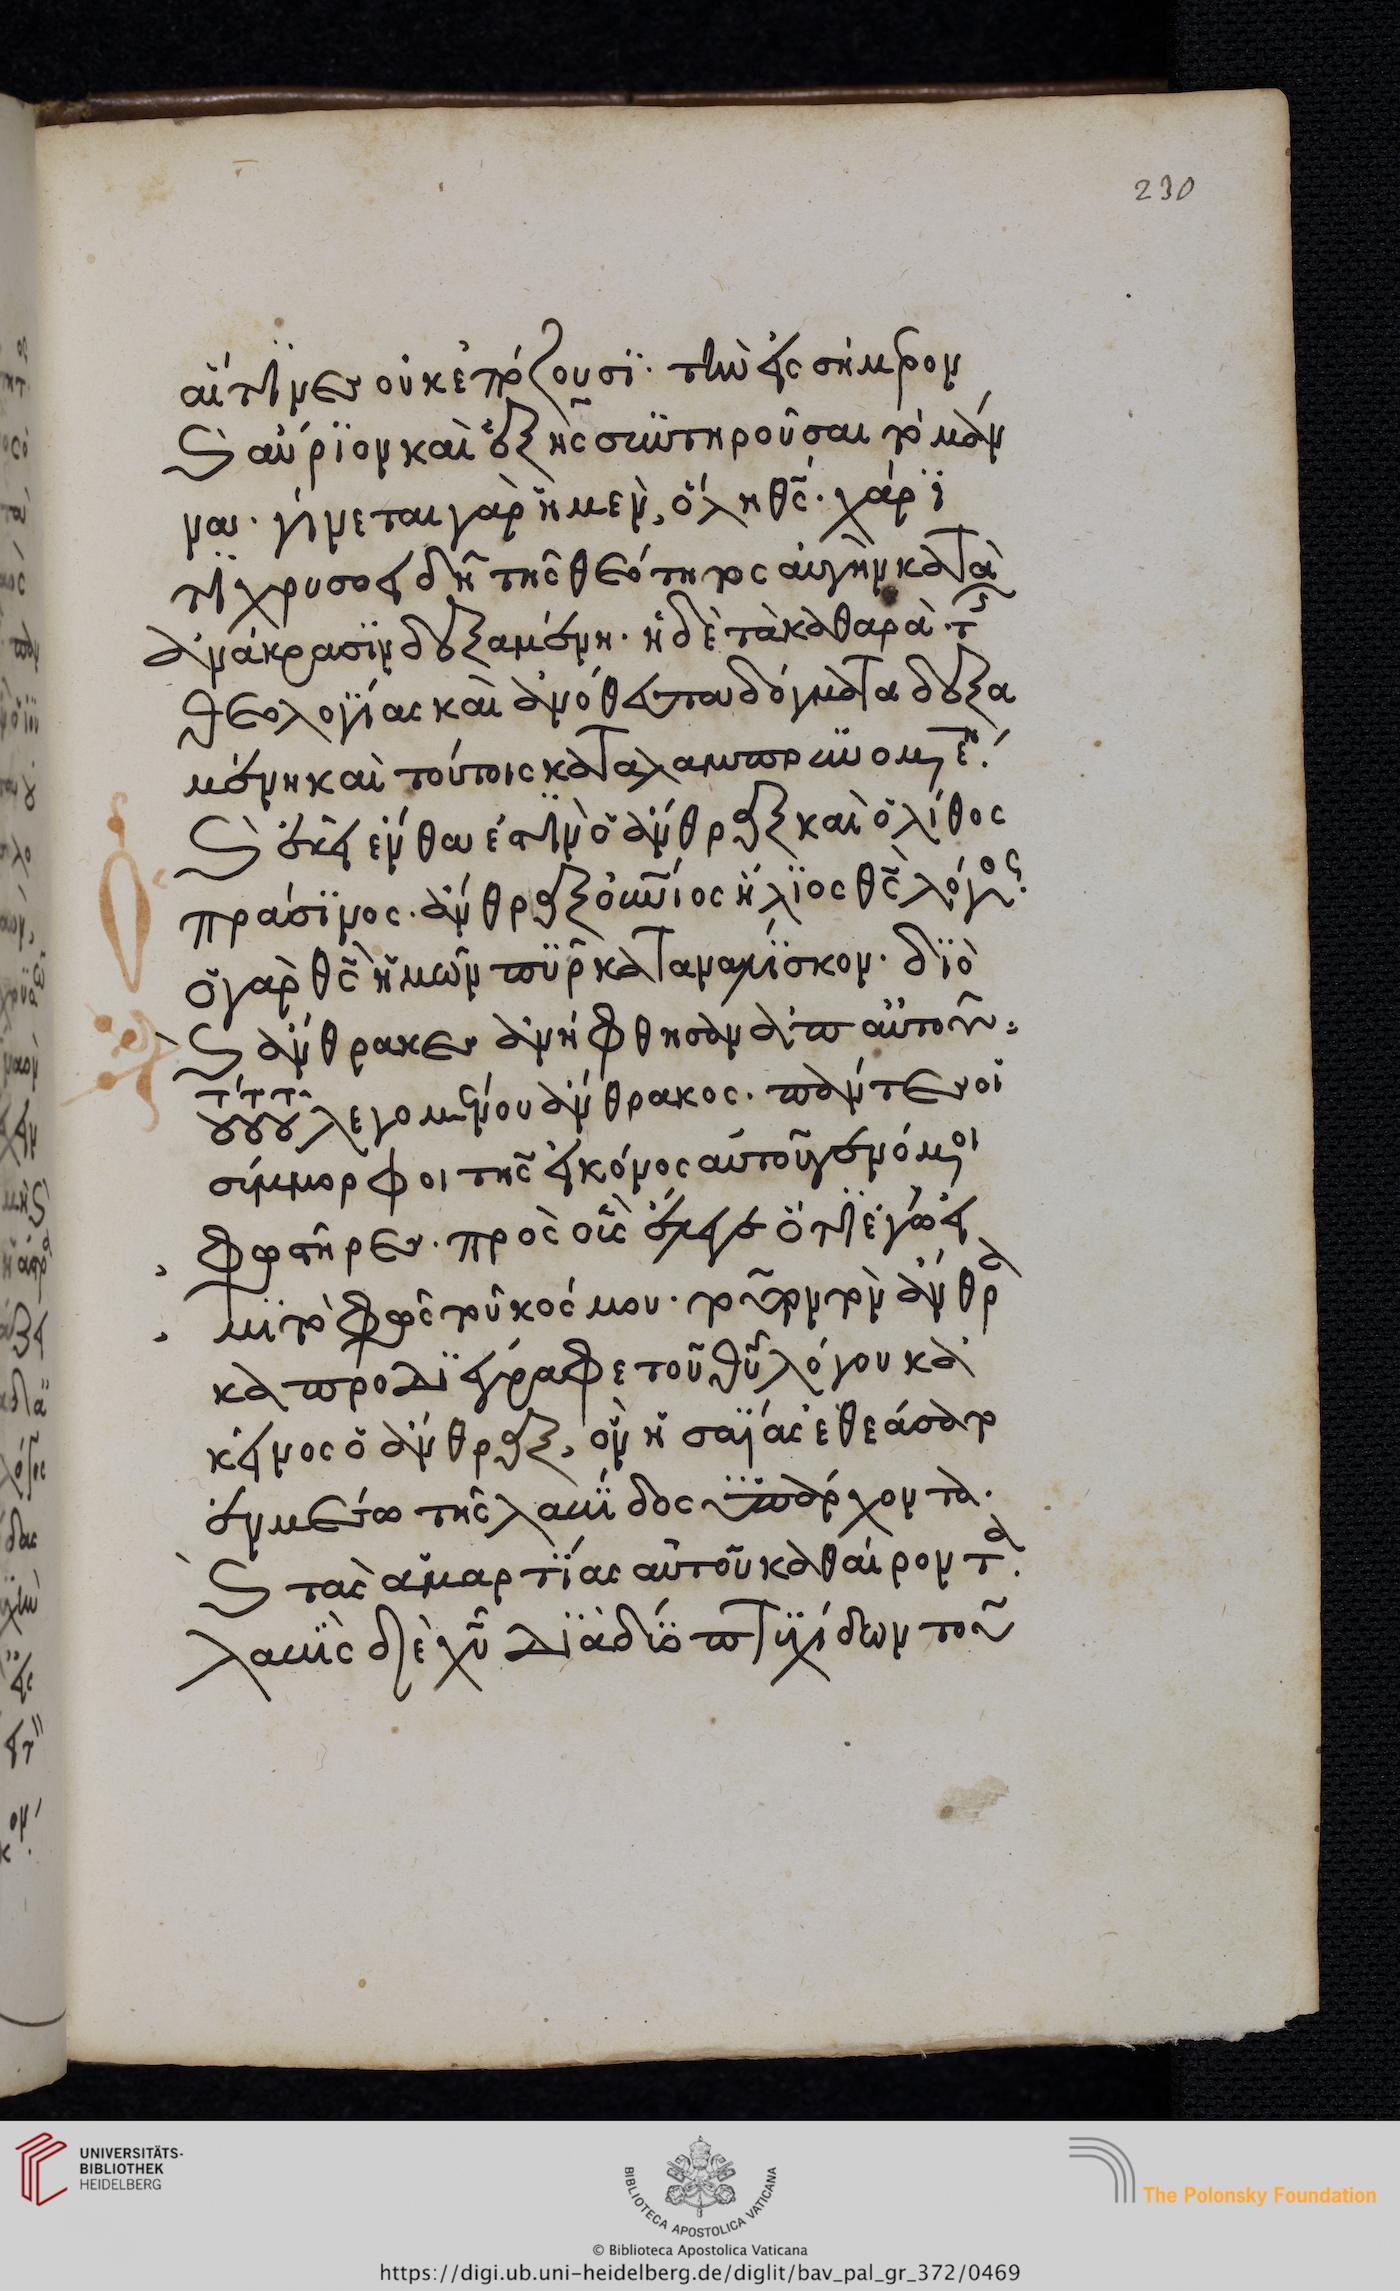 230
αἵτινες οὐκ ἐπρίζουσι· τὴν εἰς σήμερον
καὶ αὔριον καὶ ἑξῆς σωτηροῦσαι τὸ μάν
να· γίνεται γὰρ ἡ μὲν, ὁ λίθος· χάρι
τι χρυσοειδῆ τῆς θεότητος αὐγὴν κατὰ
ἀνάκρασιν δεξαμένη· ἡ δὲ τὰ καθαρὰ τῆς
θεολογίας καὶ ἀνόθευτα δόγματα δεξα
μένη καὶ τούτοις καταλαμπρυνομένη·
καὶ ἐκεῖ ἔνθα ἐστὶν ὁ ἄνθραξ καὶ ὁ λίθος
πράσινος· ἄνθραξ ὁ ὤνιος ἥλιος θς λόγος·
ὁ γὰρ θς ἡμῶν πῦρ καταναλίσκον· διὸ
καὶ ἄνθρακες ἀνήφθησαν ἀπ αὐτοῦ·
τουτου λεγομένου ἄνθρακος· πάντες οἱ
σύμμορφοι τῆς εἰκόνος αὐτοῦ γενόμενοι
φωστῆρες· πρὸς οὓς ἔλεγε ὅτι ἐγώ εἰ
μι τὸ φῶς τοῦ κόσμου· τοῦτον τὸν ἄνθρα
κα προδιέγραφε τοῦ θυ λόγου κά
κεῖνος ὁ ἄνθραξ, ὃν ἡσαΐας ἐθεάσατο
ἐν μέσω τῆς λαβίδος ὑπάρχοντα·
καὶ τὰς ἁμαρτίας αὐτοῦ καθαίροντα·
λαβὶς δὲ χυ διὰ δύο πτυχίδων τοῦ
UNIVERSITÄTS-
BIBLIOTHEK
HEIDELBERG
BIBLIOTECA APOSTOLICA VATICANA
The Polonsky Foundation
© Biblioteca Apostolica Vaticana
https://digi.ub.uni-heidelberg.de/diglit/bav_pal_gr_372/0469